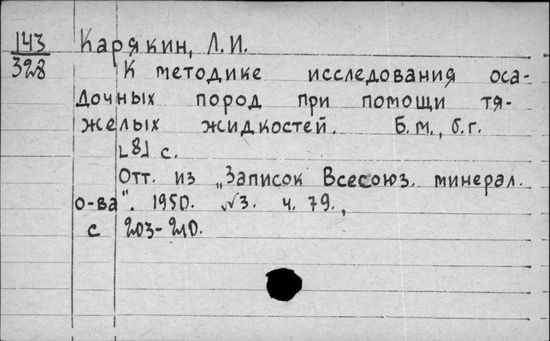 143 Карякин, Л.И.
328 К методике исследования оса-
дочных пород при помощи тя-
желых жидкостей. Б.м., б.г.
[8] с.
Отт. из „Записок Всесоюз. минерал.
о-ва". 1950. №3. ч. 79.,
с 203-210.